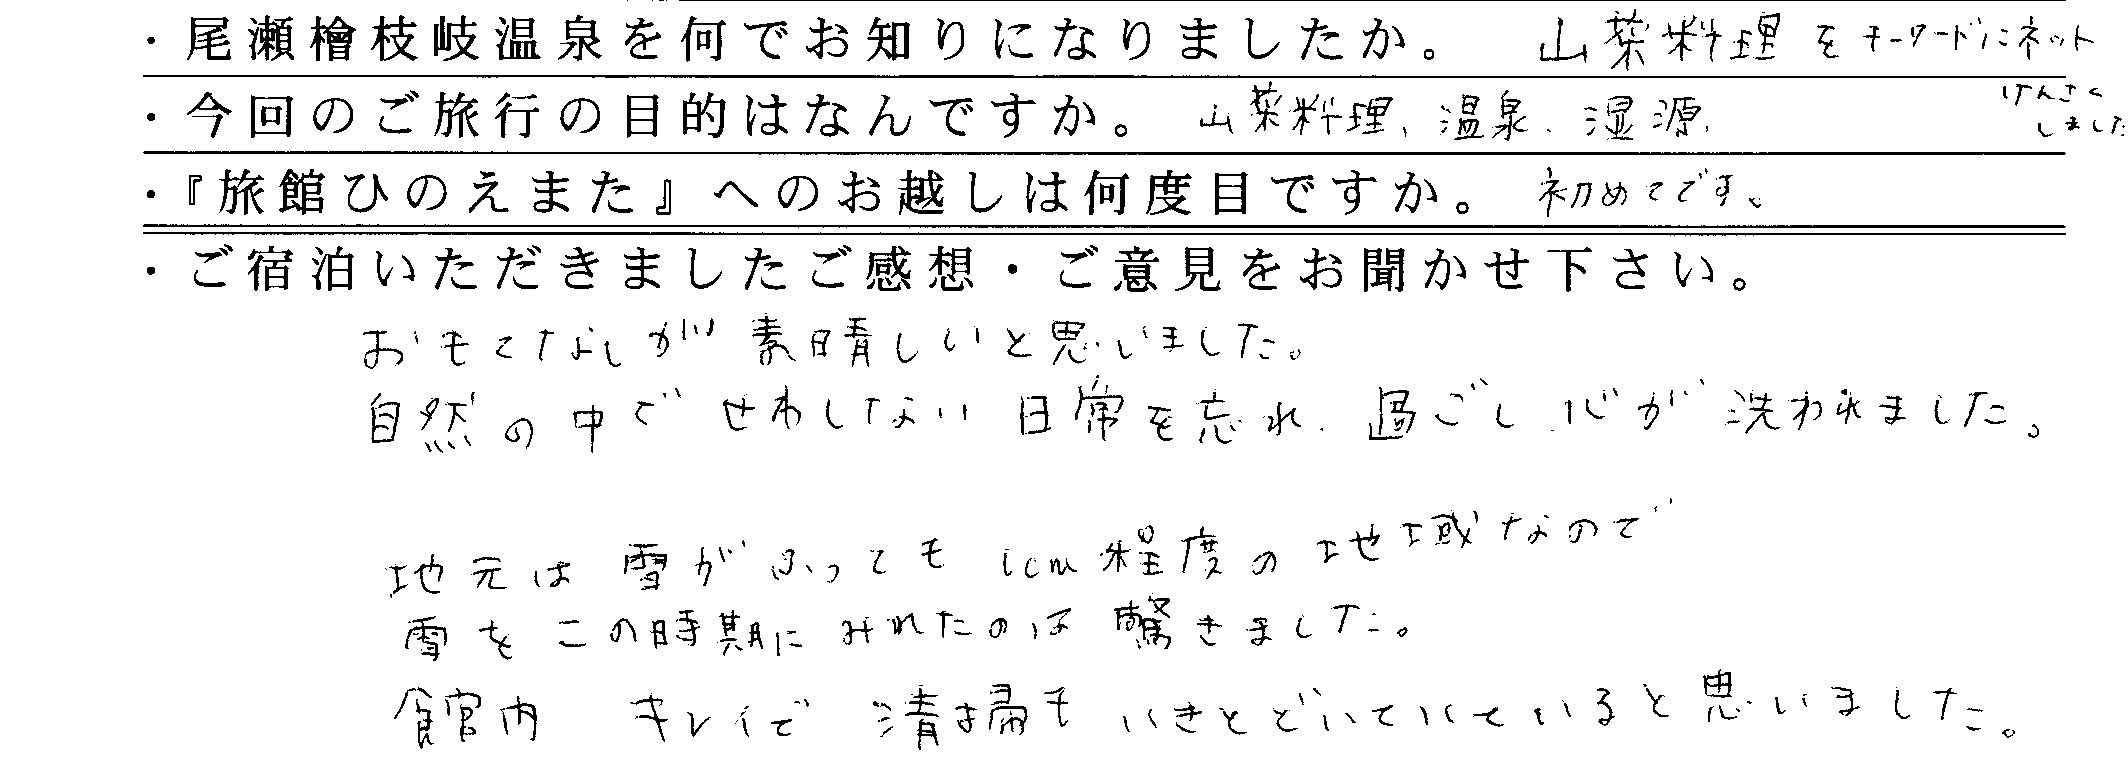 ・尾瀬檜枝岐温泉を何でお知りになりましたか。 山菜料理をキーワードにネット
けんさく
しました
・今回のご旅行の目的はなんですか。 山菜料理、温泉、湿源、
・『旅館ひのえまた』へのお越しは何度目ですか。 初めてです。
・ご宿泊いただきましたご感想・ご意見をお聞かせ下さい。
おもてなしが素晴しいと思いました。
自然の中でせわしない日常を忘れ、過ごし、心が洗われました。
地元は雪がふっても1cm程度の地域なので
雪をこの時期にみれたのは驚きました。
館内 キレイで 清掃も いきとどいていていると思いました。